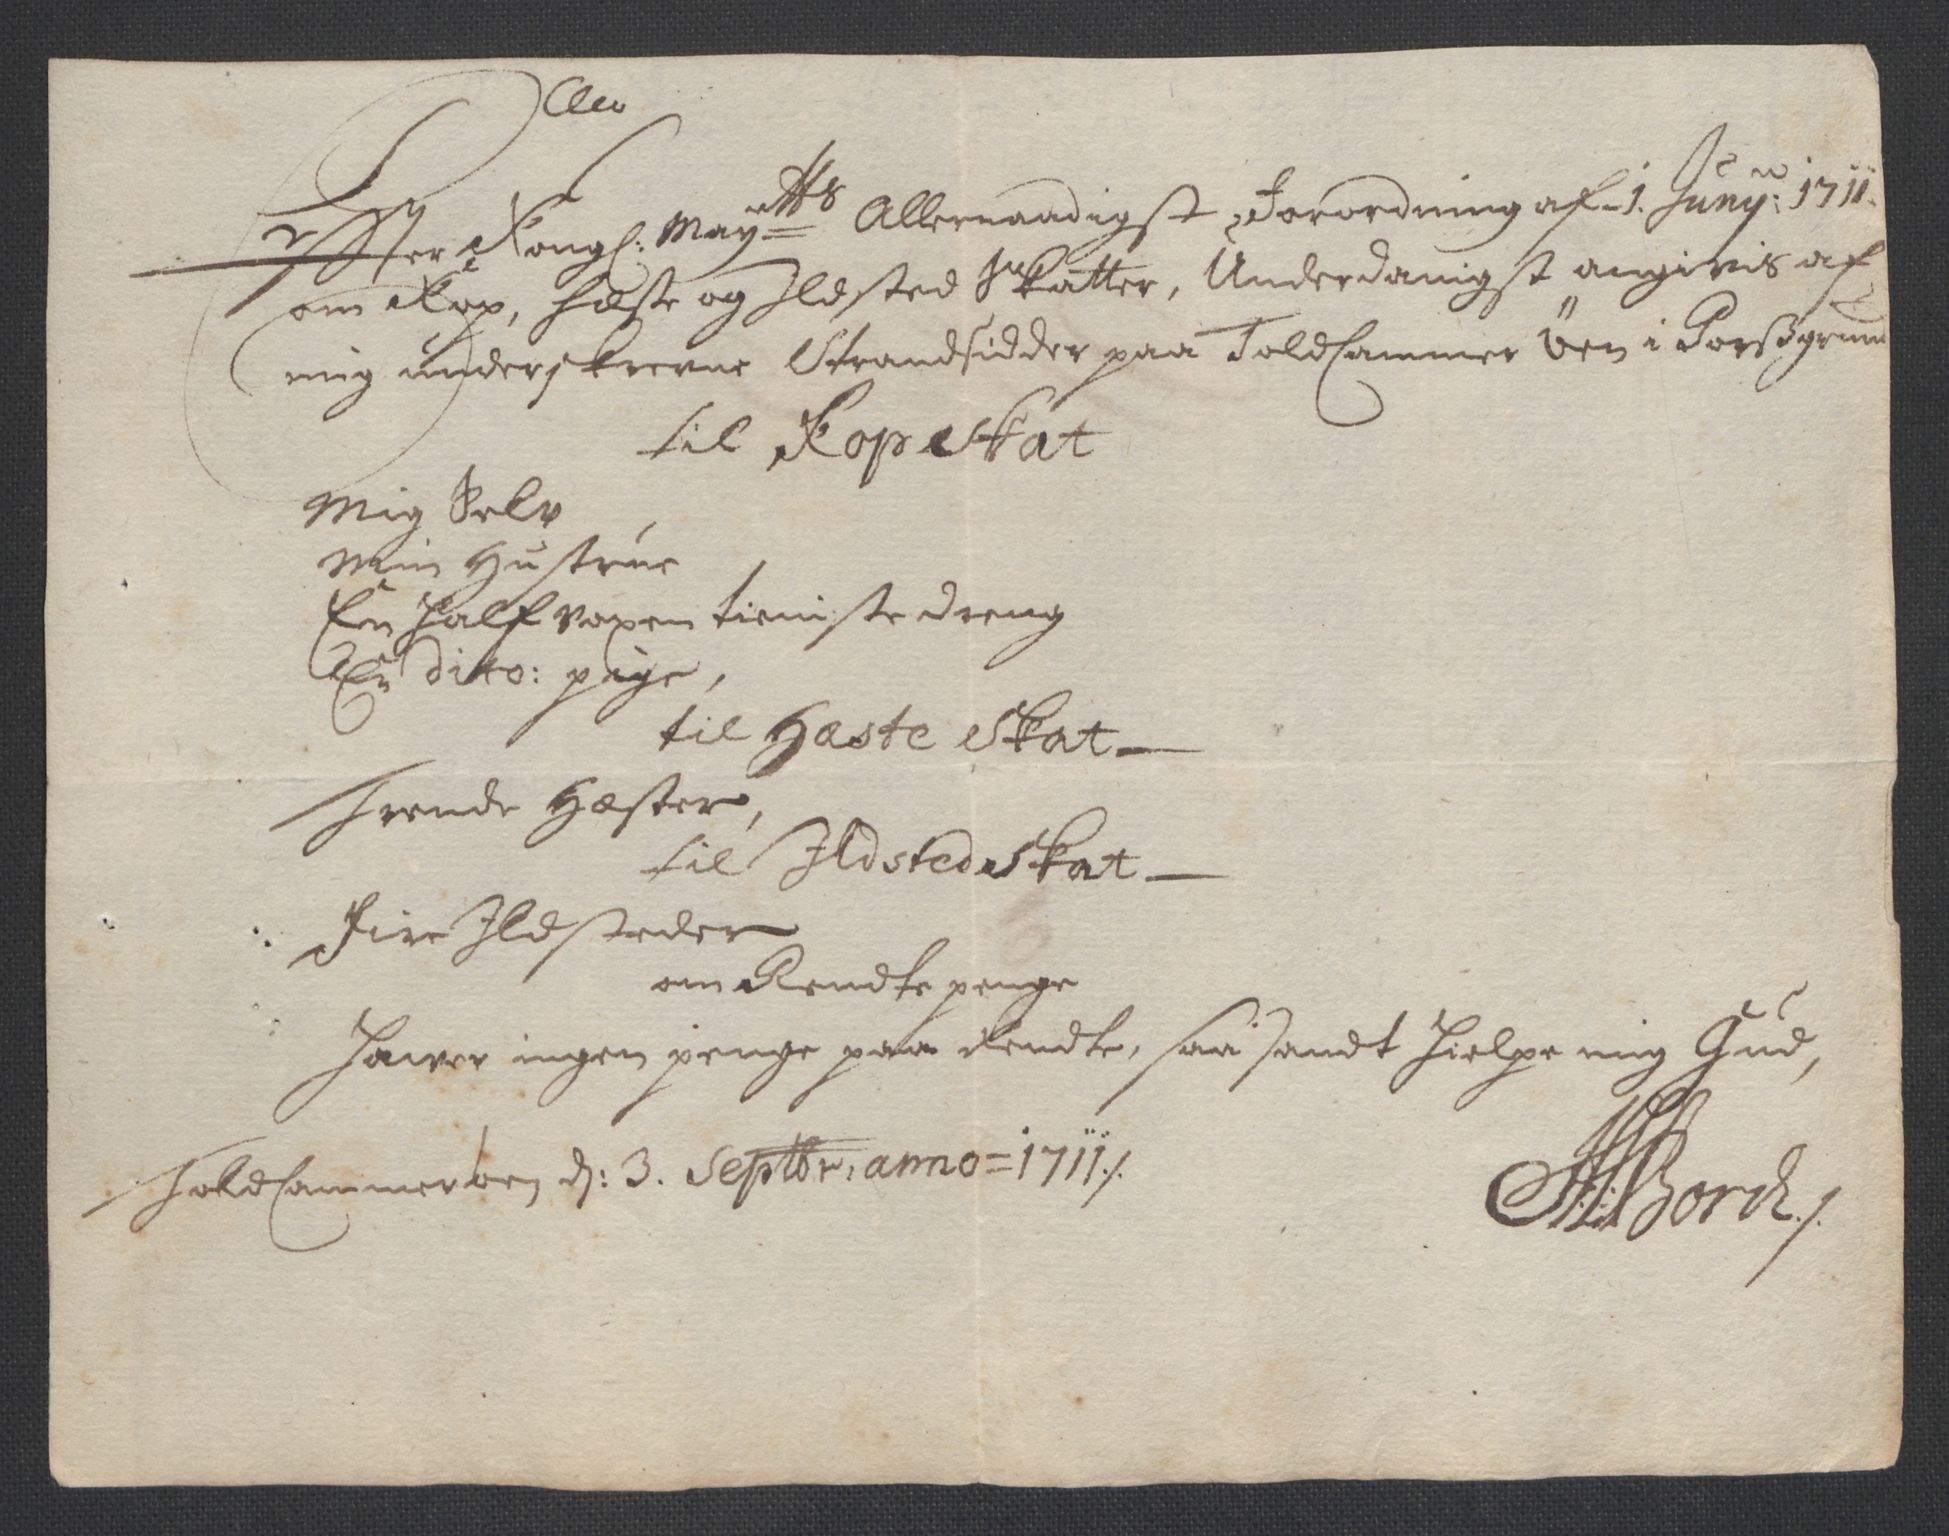 Effter Kongl: May:tts Allernaadigst Forordning af 1. Juny: 1711
om Kop, Hæste og Ildsted Skatter, Underdanigst angivis af
mig underskrevne Strandsidder paa ToldCammer Öen i Porßgrund
til KopeSkat
Mig Selv
Min Hustrue
En Half voxen tieniste dreng
En dito: pige,
til Hæste Skat
Trende Hæster,
til IldstedeSkat
Fire Ildsteder
om Rendte penge
Haver ingen penge paa Rendte, saa sandt Hielpe mig Gud,
ToldCammeröen d: 3. Septbr: anno=1711./.
Borch./.